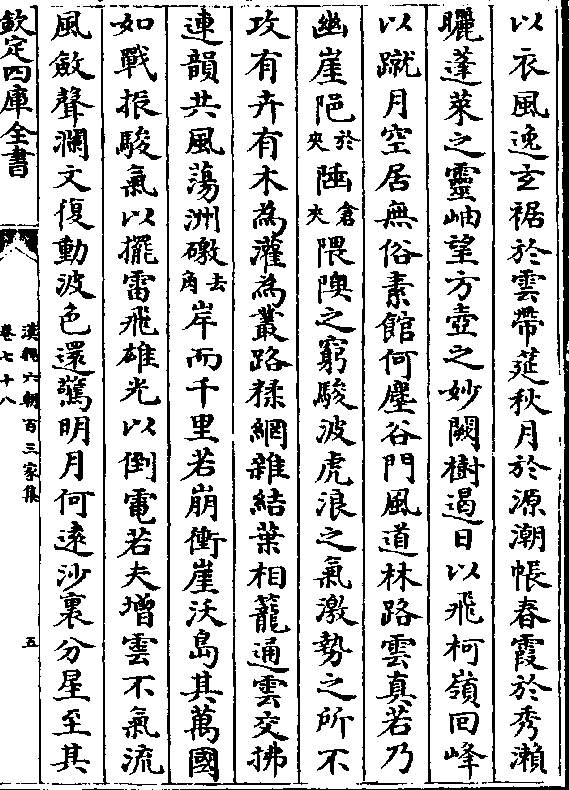 以衣風逸玄裾於雲帶莚秋月於源潮帳春霞於秀瀨
曬蓬萊之靈岫望方壺之妙闕樹遏日以飛柯嶺回峰
以蹴月空居無俗素館何塵谷門風道林路雲真若乃
幽崖𨹟於夾陲倉夾隈隩之窮駿波虎浪之氣激勢之所不
攻有卉有木為灌為叢路糅網雜結葉相籠通雲交拂
連韻共風蕩洲礉去角岸而千里若崩衝崖沃島其萬國
如戰振駿氣以擺雷飛雄光以倒電若夫增雲不氣流
風斂聲瀾文復動波色還驚明月何遠沙裏分星至其
欽定四庫全書
漢魏六朝百三家集
卷七十八
五